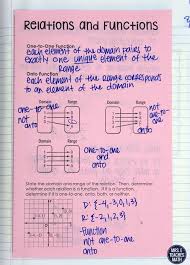 Relations and Functions
One-to-One Function
each element of the domain pairs to
exactly one unique element of the
Range
Onto Function
each element of the Range corresponds
to an element of the domain
Domain Range Domain Range
one-to-one
not
onto
not
one-to-one
onto
Domain Range
one-to-one
and
onto
State the domain and range of the relation. Then, determine
whether each relation is a function. If it is a function,
determine if it is one-to-one, onto, both, or neither.
D: {-4,-3,0,1,3}
R: {-2,1,2,3}
-Function
not one-to-one
onto
MRS. E
TEACHES
MATH